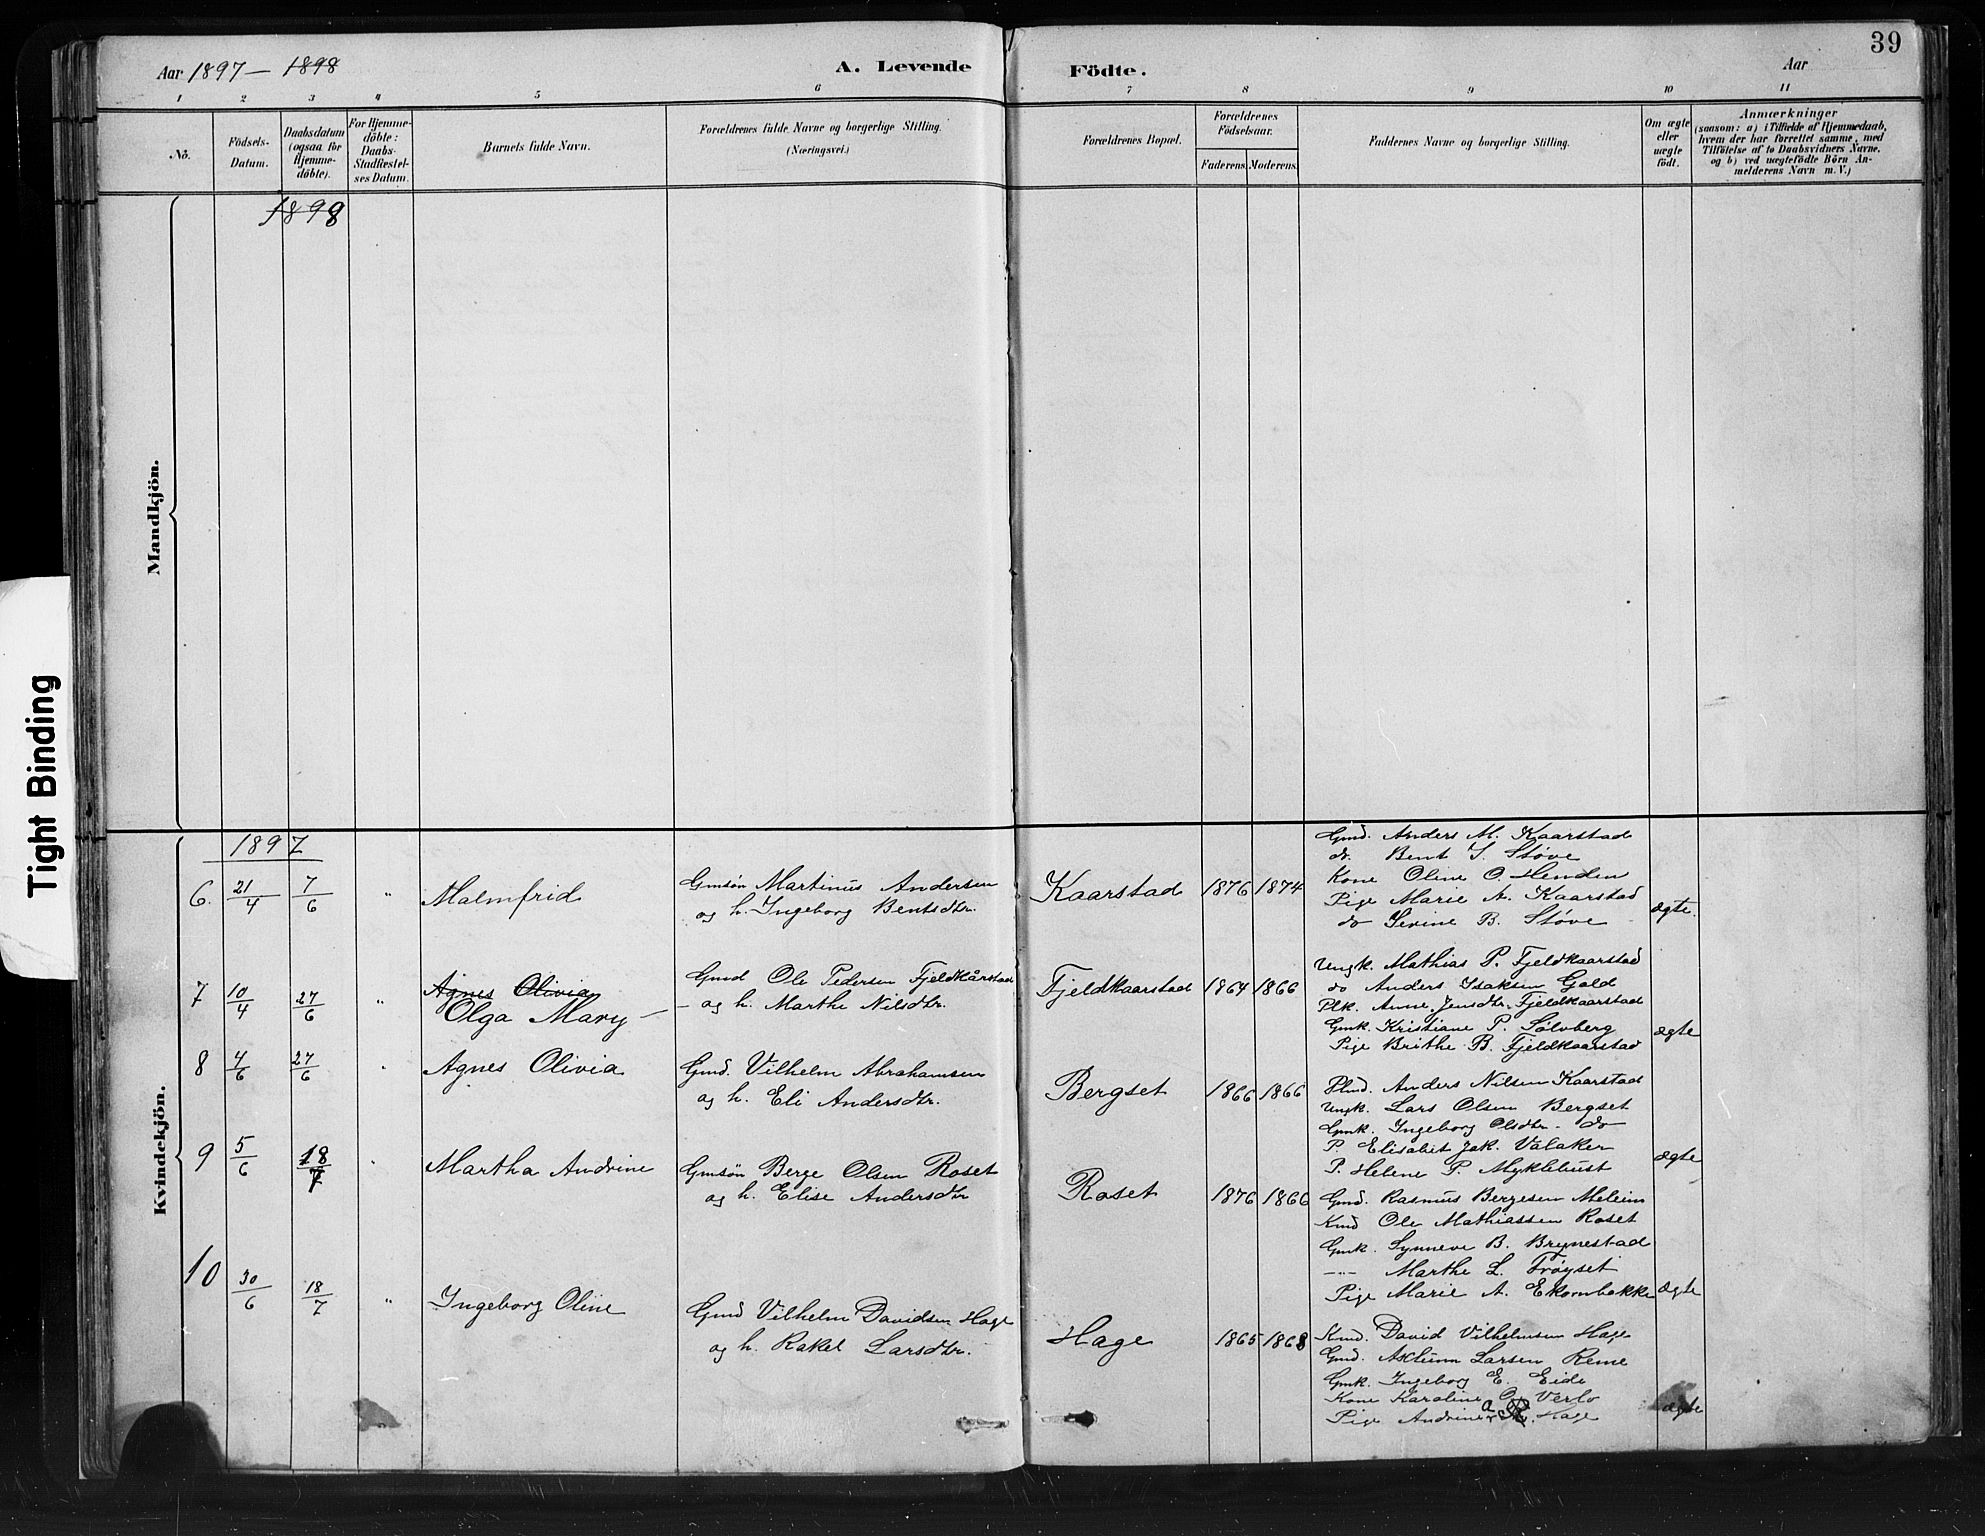 39
Aar 1897 — 1898
A. Levende Födte.
Aar
1 2 3 4 5 6 7 8 9 10 11
No.
Födsels-Datum.
Daabsdatum (ogsaa for Hjemme-döbte).
For Hjemme-döbte: Daabs-Stadfæstel-ses Datum.
Barnets fulde Navn.
Forældrenes fulde Navne og borgerlige Stilling.
(Næringsvei.)
Forældrenes Bopæl.
Forældrenes Födselsaar.
Faderens. Moderens.
Faddernes Navne og borgerlige Stilling.
Om ægte eller uægte födt.
Anmærkninger
(saasom: a) i Tilfælde af Hjemmedaab,
hvem der har forrettet samme, med
Tilföielse af to Daabsvidners Navne,
og b) ved uægtefödte Börn An-
melderens Navn m. V.)
Mandkjön.
1898
Tight Binding
Kvindekjön.
1897
6. 21/4 7/6 " Malmfrid
Gmsön Martinus Andersen
og h. Ingeborg Bentsdtr.
Kaarstad 1876 1874
Gmd. Anders M. Kaarstad
do. Bent S. Støve
Kone Oline O. Henden
Pige Marie A. Kaarstad
do Sevine B. Støve
ægte.
7 10/4 27/6 " Agnes Olivia
Olga Mary —
Gmd Ole Pedersen Fjeldkårstad
— og h. Marthe Nilsdtr.
Fjeldkaarstad 1864 1866
Ungk. Mathias P. Fjeldkaarstad
do Anders Isaksen Gold
Plk. Anne Jensdtr. Fjeldkaarstad
Gmk. Kristiane P. Sølvberg
Pige Brithe B. Fjeldkaarstad
ægte
8 4/6 27/6 " Agnes Olivia
Gmd. Vilhelm Abrahamsen
og h. Eli Andersdtr.
Bergset 1866 1866
Plmd. Anders Nilsen Kaarstad
Ungk. Lars Olsen Bergset
Gmk. Ingeborg Olsdtr. do
P. Elisabet Jak. Valaker
P. Helene P. Myklebust
ægte
9 5/6 18/7 " Martha Andrine
Gmsön Berge Olsen Roset
og h. Elise Andersdtr
Roset 1876 1866
Gmd. Rasmus Bergesen Meleim
Kmd Ole Mathiassen Roset
Gmk. Synneve B. Brynestad
--- Marthe L. Trøyset
Pige Marie A. Ekornbakke
ægte
10 30/6 18/7 " Ingeborg Oline
Gmd Vilhelm Davidsen Hage
og h. Rakel Larsdtr.
Hage 1865 1868
Kmd. David Vilhelmsen Hage
Gmd. Larsen Reme
Gmk. Ingeborg E. Eide
Kone Karoline Verlo
Pige Andrine A. Hage
ægte